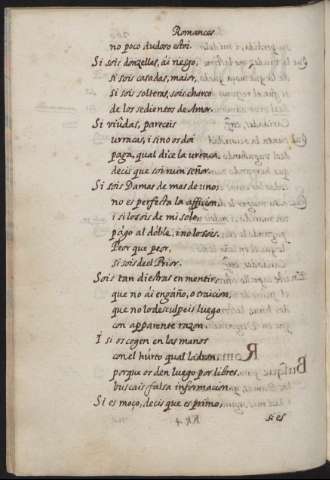 Romances
no poco dudoso estoi.
Si sois donzellas, ái riesgo,
si sois casadas, maior,
si sois solteras, sois charco
de los sedientos de Amor.
Si viúdas, pareceis
urracas, i si no os doi
paga, qual dice la urraca,
decis que soi ruin señor.
Si sois Damas de mas de uno,
no es perfecta la afficion,
i si lo sois de mi solo,
págo al doble, i no lo sois.
Peor que peor,
si sois de el Prior.
Sois tan diestras en mentir,
que no ái engáño, o traicion,
que no lo desculpeis luego
con apparente razon.
I si os cogen en las manos
con el hurto qual ladron,
porque os den luego por libres,
buscais falsa informacion.
Si es moço, decis que es primo,
si es